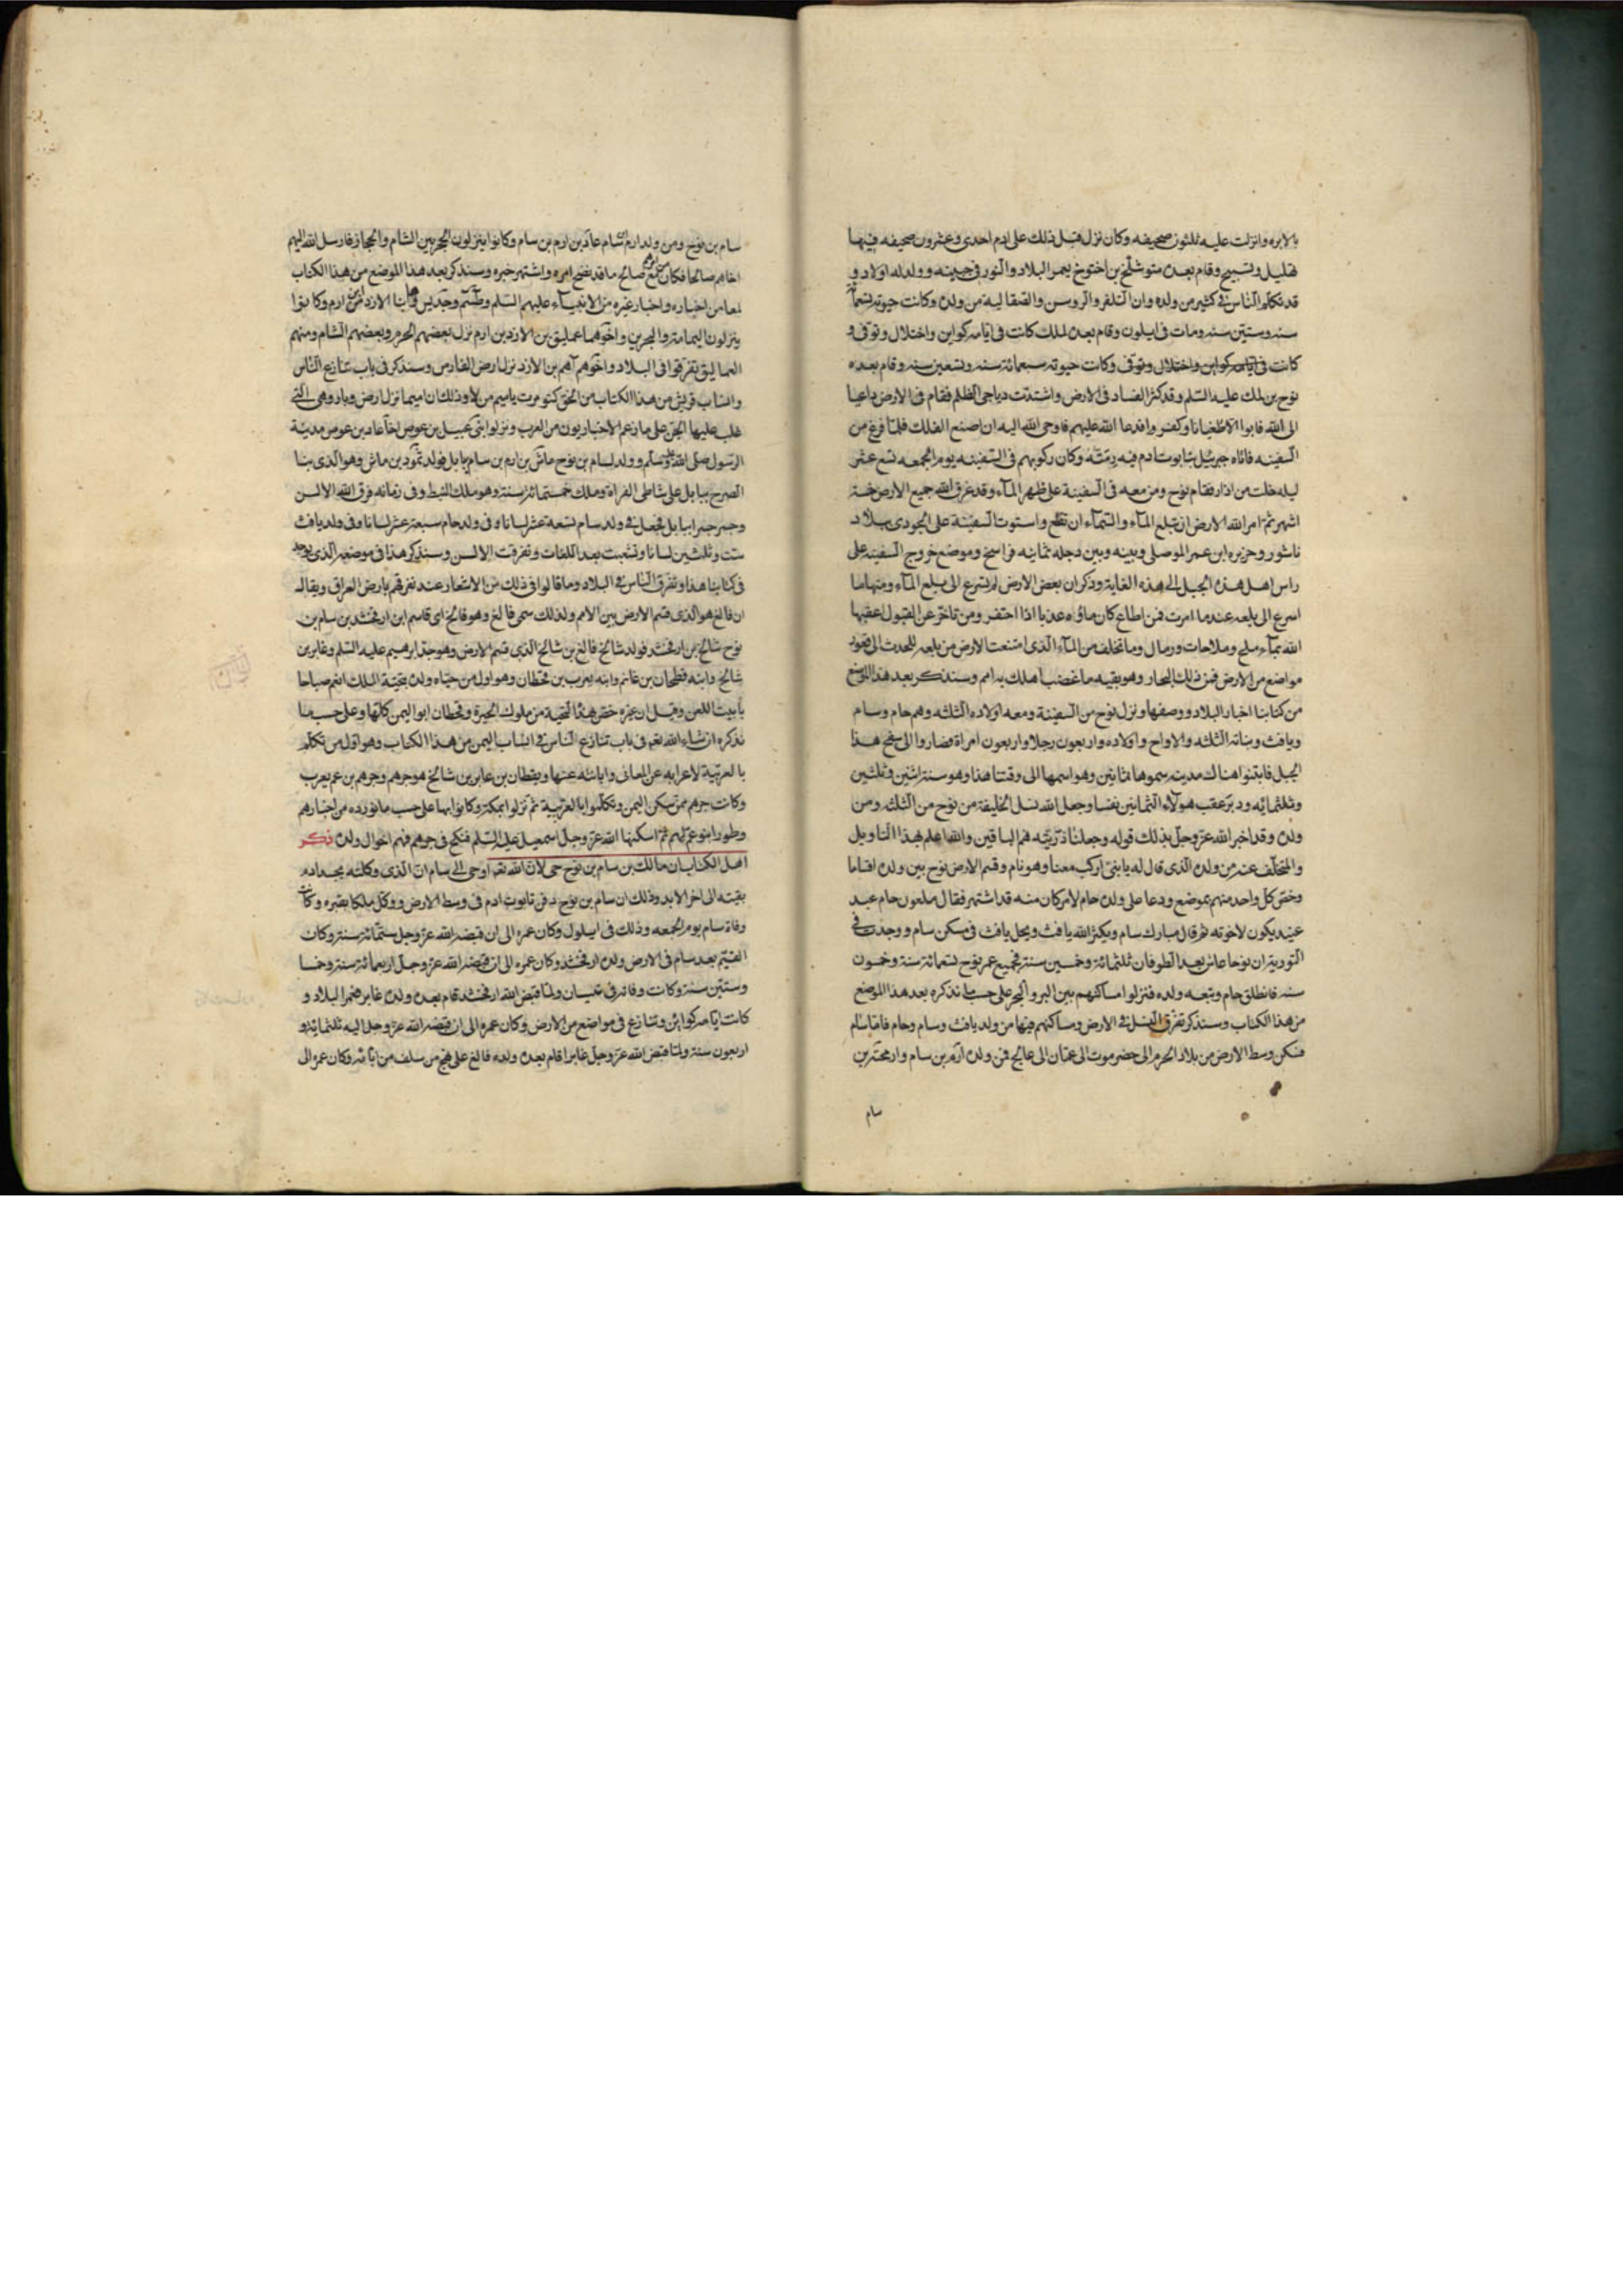 بالابره وانزلت عليه ثلثون صحيفه وكان نزل قبل ذلك على ادم احدى وعشرون صحيفه فيها
تهليل وتسبيح وقام بعده متوشلخ بن اخنوخ يعمر البلاد والنور فى جبينه وولد له اولاد و
قد تكلم الناس فى كثير من ولده وان البلغر والروس والصقالبه من ولده وكانت حيوته تسعمائة
سنه وستين سنه ومات فى ايلول وقام بعده لمك كانت فى ايامه كواين واختلال وتوفى و
كانت فى ايامه كواين واختلال وتوفى وكانت حيوته سبعمائة سنه وتسعين سنه وقام بعده
نوح بن لمك عليه السلم وقد كثر الفساد فى الارض واشتدت دياجى الظلم فقام فى الارض داعيا
الى الله فابوا الا طغيانا وكفرا فدعا الله عليهم فاوحى الله اليه ان اصنع الفلك فلما فرغ من
السفينه فاتاه جبرئيل بتابوت ادم فيه رمته وكان ركوبهم فى السفينه يوم الجمعه تسع عشر
ليله خلت من اذار فقام نوح ومن معه فى السفينة على ظهر المآء وقد غرق الله جميع الارض خمسة
اشهر ثم امر الله الارض ان تبلع المآء والسمآء ان تقلع واستوت السفينة على الجودى ببلاد
ناشور وجزيره ابن عمر الموصلى وبينه وبين دجله ثمانيه فراسخ وموضع خروج السفينه على
راس اهل هذه الجبل الى هذه الغاية وذكر ان بعض الارض لم يسرع الى بلع المآء ومنها ما
اسرع الى بلعه عندما امرت فمن اطاع كان ماؤه عذبا اذا احتفر ومن تاخر عن القبول اعقبها
الله بمآء ملح وملاحات ورمال وما تخلف من المآء الذى امتنعت الارض من بلعه انحدر الى قعور
مواضع من الارض فمن ذلك البحار وهو بقيه ما غضب اهلك به امم وسنذكر بعد هذا الموضع
من كتابنا اخبار البلاد ووصفها ونزل نوح من السفينة ومعه اولاده الثلثه وهم حام وسام
ويافث وبناته الثلثه والازواج واولاده واربعون رجلا واربعون امراة فصاروا الى سفح هذا
الجبل فابتنوا هناك مدينه سموها ثمانين وهو اسمها الى وقتنا هذا وهو سنه اثنين وثلثين
وثلثمائه ودبر عقب هولآء الثمانين نفسا وجعل الله نسل الخليقة من نوح من الثلثه ومن
ولده وقد اخبر الله عز وجل بذلك قوله وجعلنا ذريته هم الباقين والله اعلم بهذا التاويل
والمتخلف عنه من ولده الذى قال له يا بنى اركب معنا وهو نام وقسم الارض نوح بين ولده اقساما
وخص كل واحد منهم بموضع ودعا على ولده حام لامر كان منه قد اشتهر فقال ملعون حام عبد
عبيد يكون لاخوته ثم قال مبارك سام ويكثر الله يافث ويحل يافث فى مسكن سام ووجدت فى
التورية ان نوحا عاش بعد الطوفان ثلثمائة وخمسين سنة فجميع عمر نوح تسعمائة سنة وخمسون
سنه فانطلق حام وتبعه ولده فنزلوا مساكنهم بين البر والبحر على حسب ما نذكره بعد هذا الموضع
من هذا الكتاب وسنذكر تفرق النسل فى الارض ومساكنهم فيها من ولد يافث وسام وحام فاما سام
فسكن وسط الارض من بلاد الحرم الى حضرموت الى عمان الى عالج فمن ولده ارم بن سام وارفخشد بن
سام
سام بن نوح ومن ولد ارم بن سام عاد بن ارم بن سام وكانوا ينزلون الحجر بين الشام والحجاز فارسل الله اليهم
اخاهم صالحا فكان من صالح ما قد نضح امره واشتهر خبره وسنذكر بعد هذا الموضع من هذا الكتاب
لمعا من اخباره واخبار غيره من الانبيآء عليهم السلم وطسم وجديس ابنا الازد بن ارم وكانوا
ينزلون اليمامة والبحرين واخوهما عمليق بن الازد بن ارم نزل بعضهم الحرم وبعضهم الشام ومنهم
العماليق تفرقوا فى البلاد واخوهم اهم بن الازد نزل ارض الفارس وسنذكر فى باب تنازع الناس
وانساب فريش من هذا الكتاب من الحق كيومرث باميم من لاوذ لك ان اميما نزل ارض وبار وهى التى
غلب عليها الجن على ما زعم الاخباريون من العرب ونزلوا بنى عبيل بن عوص اخا عاد بن عوص مدينة
الرسول صلى الله عليه وسلم وولد لسام بن نوح ماش بن ارم بن سام ببابل فولد نمرود بن ماش وهو الذى بنا
الصرح ببابل على شاطى الفراة وملك خمسمائة سنة وهو ملك النبط وفى زمانه فرق الله الالسن
وجسر جسرا ببابل فجعل فى ولد سام تسعة عشر لسانا وفى ولد حام سبعة عشر لسانا وفى ولد يافث
ست وثلثين لسانا وتشعبت بعد اللغات وتفرقت الالسن وسنذكر هذا فى موضعه الذى يوجد
فى كتابنا هذا وتفرق الناس فى البلاد وما قالوا فى ذلك من الاشعار عند تفرقهم بارض العراق ويقال
ان فالغ هو الذى قسم الارض بين الامم ولذلك سمى فالغ وهو فالخ اى قاسم ابن ارفخشد بن سام بن
نوح شالخ بن ارفخشد فولد شالخ فالغ بن شالخ الذى قسم الارض وهو جد ابرهيم عليه السلم وغابر بن
شالخ وابنه قحطان بن غابر وابنه يعرب بن قحطان وهو اول من حياه ولده بتحية الملك انعم صباحا
يا ابيت اللعن وقيل ان غيره خص بهذا التحية من ملوك الحيرة وقحطان ابو اليمن كلها وعلى حسب ما
نذكره ان شاء الله تعم فى باب تنازع الناس فى انساب اليمن من هذا الكتاب وهو اول من تكلم
بالعربية لاعرابه عن المعانى وابانته عنها ويقطان بن عابر بن شالخ هو جرهم وجرهم بن عم يعرب
وكانت جرهم ممن سكن اليمن وتكلموا بالعربية ثم نزلوا بمكة وكانوا بها على حسب ما نورده من اخبارهم
وطورا بنو عم لهم ثم اسكنها الله عز وجل اسمعيل عليه السلم فنكح فى جرهم فهم اخوال ولده ذكر
اهل الكتاب ان مالك بن سام بن نوح حى لان الله تعم اوحى الى سام ان الذى وكلته بجسد ادم
بقيته الى اخر الابد وذلك ان سام بن نوح دفن تابوت ادم فى وسط الارض ووكل ملكا بقبره وكانت
وفاة سام يوم الجمعه وذلك فى ايلول وكان عمره الى ان قبضه الله عز وجل ستمائة سنة وكان
القيم بعد سام فى الارض ولده ارفخشد وكان عمره الى ان قبضه الله عز وجل اربعمائة سنة وخمسا
وستين سنة وكانت وفاته فى نيسان ولما قبض الله ارفخشد قام بعده ولده غابر فعمر البلاد و
كانت ايامه كواين وتنازع فى مواضع من الارض وكان عمره الى ان قبضه الله عز وجل اليه ثلثمائة و
اربعون سنة ولما قبض الله عز وجل غابرا قام بعده ولده فالغ على نهج من سلف من ابائه وكان عمره الى